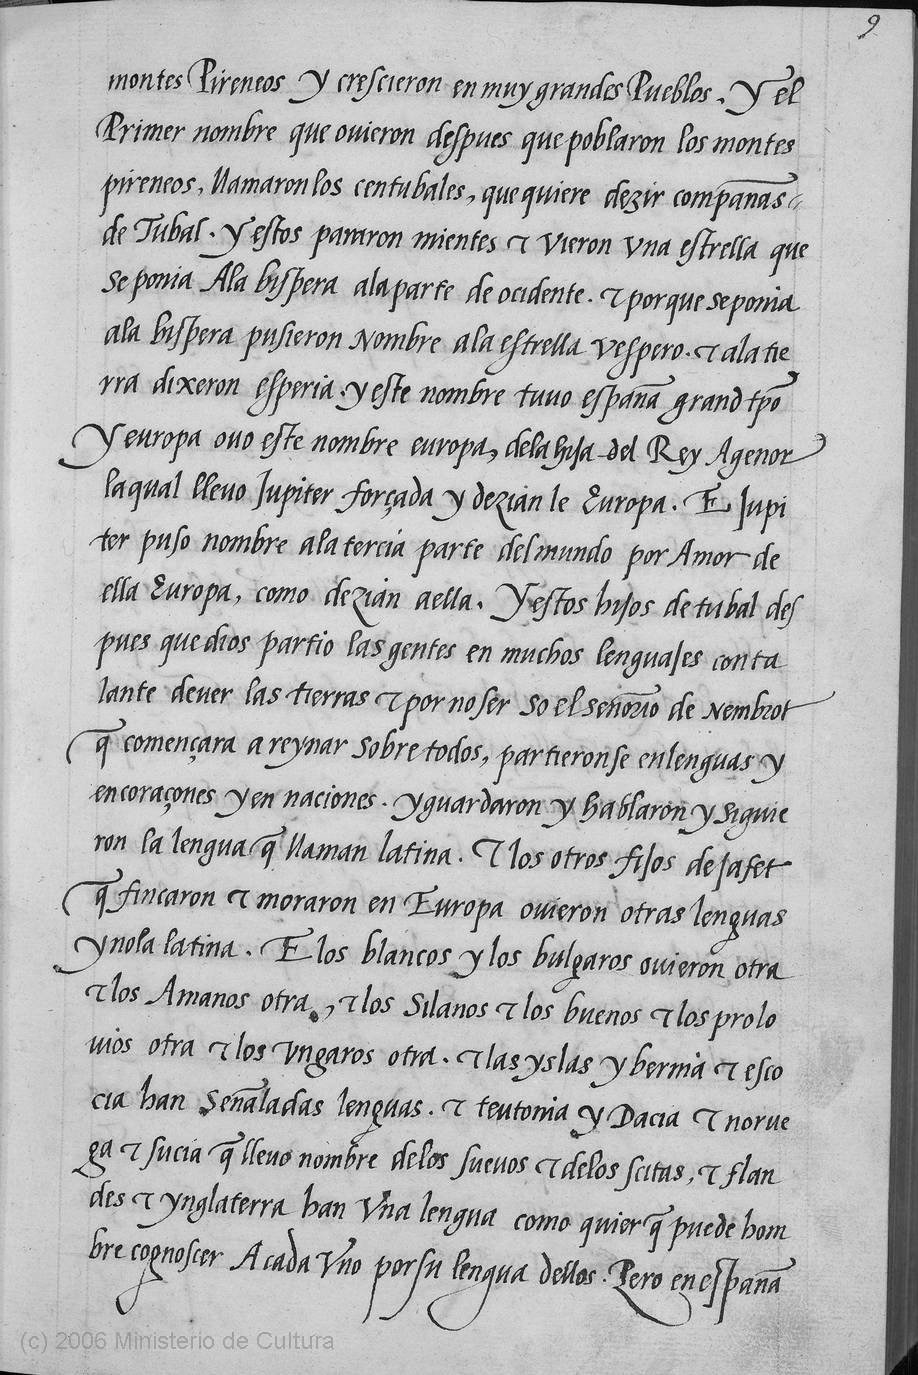 9
montes Pireneos y crescieron en muy grandes Pueblos. Y el
Primer nombre que ovieron despues que poblaron los montes
pireneos, llamaron los centubales, que quiere dezir compañas
de Tubal. Y estos pararon mientes τ vieron vna estrella que
se ponia Ala bispera ala parte de ocidente. τ porque se ponia
ala bispera pusieron Nombre ala estrella vespero. τ ala tie
rra dixeron esperia. y este nombre tuvo españa grand tp̃o
Y europa ovo este nombre europa, dela hija del Rey Agenor
la qual llevo Jupiter forçada y dezian le Europa. E Jupi
ter puso nombre ala tercia parte del mundo por Amor de
ella Europa, como dezian aella. Y estos hijos de tubal des
pues que dios partio las gentes en muchos lenguajes con ta
lante dever las tierras τ por no ser so el señorio de Nembrot
q̃ començara a reynar sobre todos, partieronse en lenguas y
en coraçones y en naciones. y guardaron y hablaron y siguie
ron la lengua q̃ llaman latina. τ los otros fijos de jafet
q̃ fincaron τ moraron en Europa ovieron otras lenguas
y no la latina. E los blancos y los bulgaros ovieron otra
τ los Amanos otra, τ los Silanos τ los buenos τ los prolo
vios otra τ los vngaros otra. τ las yslas y bernia τ esco
cia han señaladas lenguas. τ teutonia y Dacia τ norue
ga τ sucia q̃ llevo nombre delos suevos τ delos scitas, τ flan
des τ ynglaterra han vna lengua como quier q̃ puede hom
bre cognoscer A cada vno por su lengua dellos. Pero en españa
(c) 2006 Ministerio de Cultura